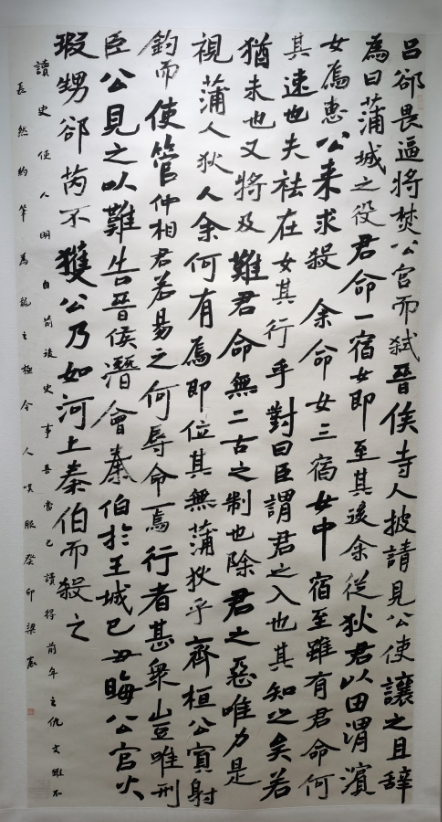 呂郤畏逼將焚公宫而弑晉侯寺人披請見公使讓之且辭
焉曰蒲城之役君命一宿女即至其後余從狄君以田渭濱
女為惠公来求殺余命女三宿女中宿至雖有君命何
其速也夫袪在女其行乎對曰臣謂君之入也其知之矣若
猶未也又將及難君命無二古之制也除君之惡唯力是
視蒲人狄人余何有焉即位其無蒲狄乎齊桓公寘射
鈎而使管仲相君若易之何辱命焉行者甚衆豈唯刑
臣公見之以難告晉侯潛會秦伯於王城己丑晦公宫火
瑕甥郤芮不獲公乃如河上秦伯而殺之
讀史使人明自前史事吾已讀得前年文雖不
長然約筆為令人嘆服癸卯梁